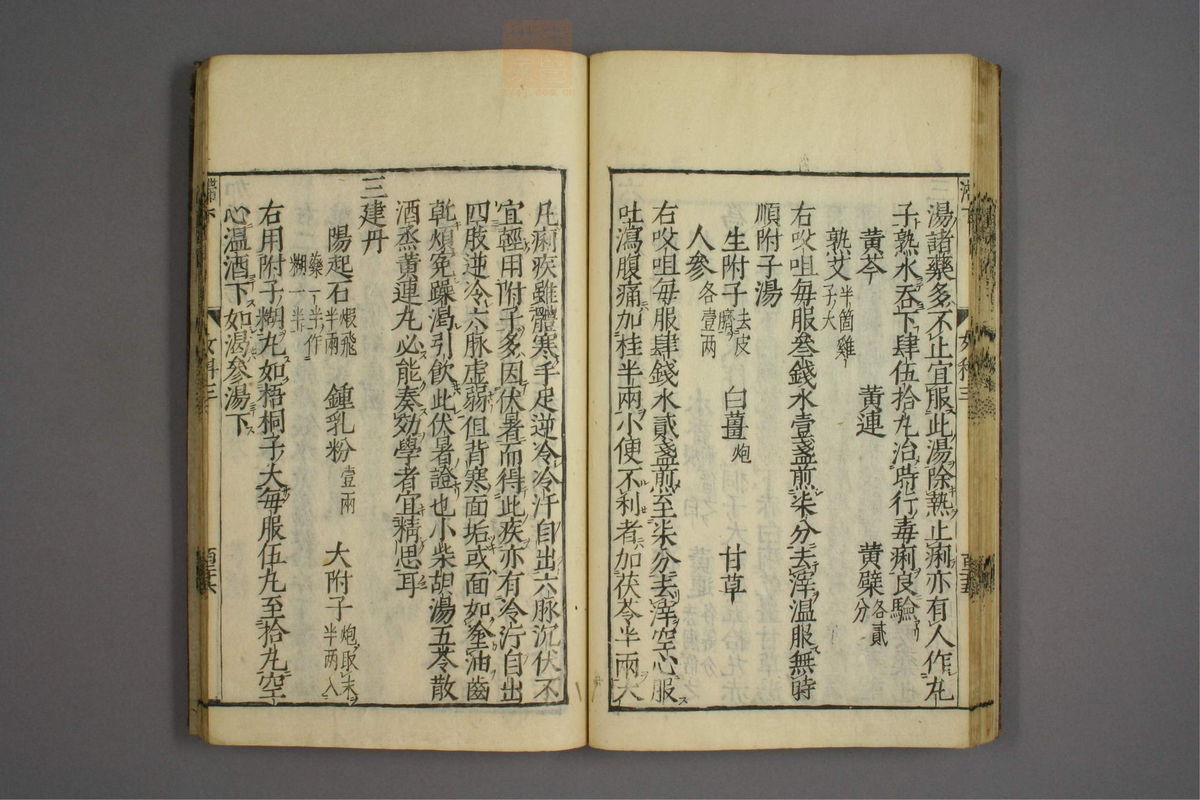 湯諸藥多不止宜服此湯除熱止痢亦有人作丸
子熟水吞下肆伍拾丸治時行毒痢良驗
黃芩　黃連　黃蘗各貳分
熟艾半箇雞子大
右㕮咀每服叄錢水壹盞煎柒分去滓溫服無時
順附子湯
生附子去皮臍　白薑炮　甘草
人參各壹兩
右㕮咀每服肆錢水貳盞煎至柒分去滓空心服
吐瀉腹痛加桂半兩小便不利者加茯苓半兩大
凡痢疾雖體寒手足逆冷冷汗自出六脉沉伏不
宜輕用附子多因伏暑而得此疾亦有冷汗自出
四肢逆冷六脉虛弱但背寒面垢或面如塗油齒
乾煩冤躁渴引飲此伏暑證也小柴胡湯五苓散
酒烝黃連丸必能奏効學者宜精思耳
三建丹
陽起石煆飛半兩一半作藥一半糊　鍾乳粉壹兩　大附子炮取末半兩入
右用附子糊丸如梧桐子大每服伍丸至拾丸空
心溫酒下如渴參湯下
女科三